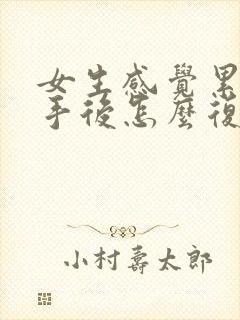 女生感覺累
手後怎麼復
小村壽太郎